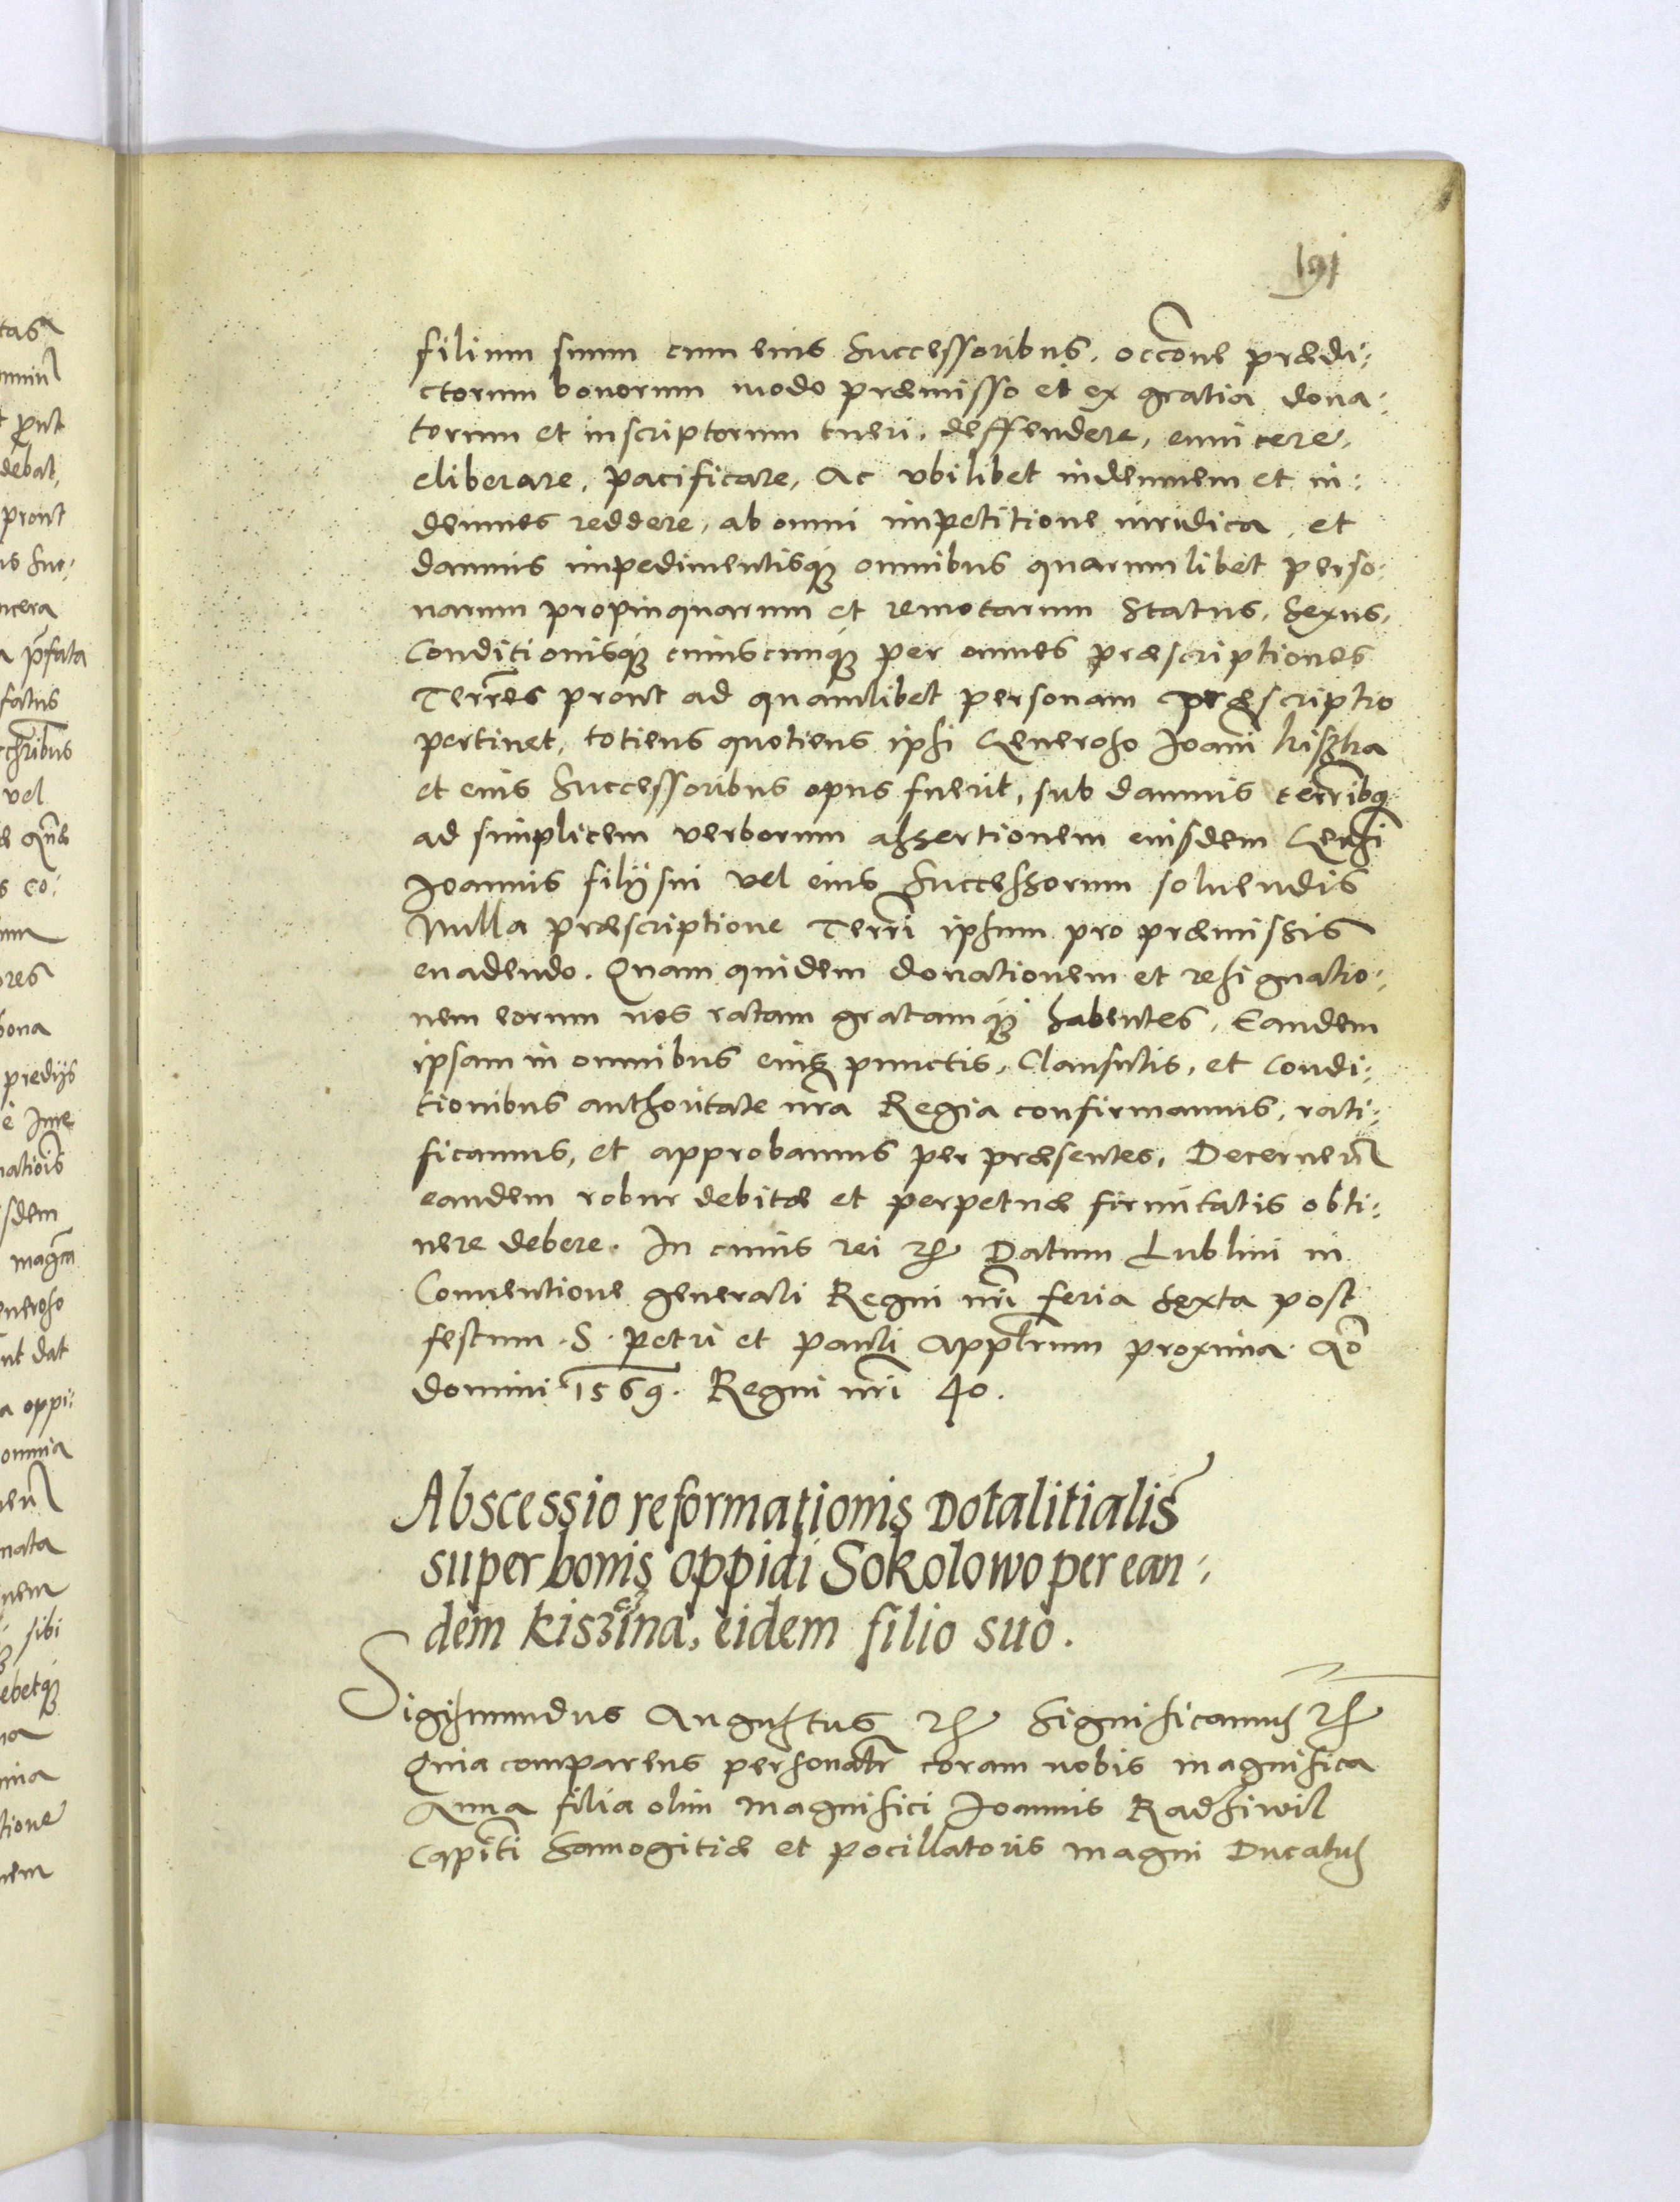 191
filium suum cum eius Successoribus, occōne prædi:
ctorum bonorum modo præmisso et ex gratia dona:
torum et inscriptorum tueri, deffendere, euincere,
eliberare, pacificare, Ac vbilibet indemnem et in:
demnes reddere, ab omni impetitione iuridica, et
damnis impedimentisq; omnibus quarumlibet perso:
narum propinquarum et remotarum Status, Sexus,
Conditionisq; cuiuscunq; per omnes præscriptiones
Terr̄es prout ad quamlibet personam præscriptio
pertinet, totiens quotiens ipsi Generoso Joanni kiszka
et eius Successoribus opus fuerit, sub damnis terr̄ibq
ad simplicem verborum assertionem eiusdem Gen̄si
Joannis filij sui vel eius Successorum soluendis
Nulla præscriptione Terr̄i ipsum pro præmissis
euadendo. Quam quidem donationem et resignatio:
nem eorum nos ratam gratamq; habentes, Eandem
ipsam in omnibus eius punctis, Clausulis, et Condi:
tionibus authoritate nr̄a Regia confirmamus, rati:
ficamus, et approbamus per præsentes, Decernen̄
eandem robur debitæ et perpetuæ firmitatis obti:
nere debere. In cuius rei etc Datum Lublini in
Conuentione generali Regni nr̄i feria Sexta post
festum .S. Petri et Pauli Appl̄rum proxima. Aō
domini 1569. Regni nr̄i 40.
Abscessio reformationis Dotalitialis
super bonis oppidi Sokolowo per ean:
dem kiszina, eidem filio suo.
Sigismundus Augustus etc Significamus etc
Quia comparens personalr̄ coram nobis magnifica
Anna filia olim Magnifici Joannis Radziwil
Capit̄i Samogitiæ et pocillatoris Magni Ducatus
tas
prout
debat,
prout
ncera
p̄fata
fatus
vel
ores
bona
prediis
sdem
magn̄
eneroso
nt dat
a oppi:
omnia
nata
nem
sibi
ebetq;
tione
nem